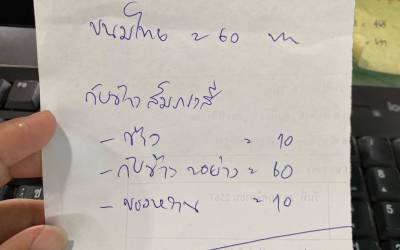 ขนมไทย = 60 บาท
กับข้าว สัมภาษณ์
- ข้าว = 10
- กับข้าว ๒อย่าง = 60
- ของหวาน = 10